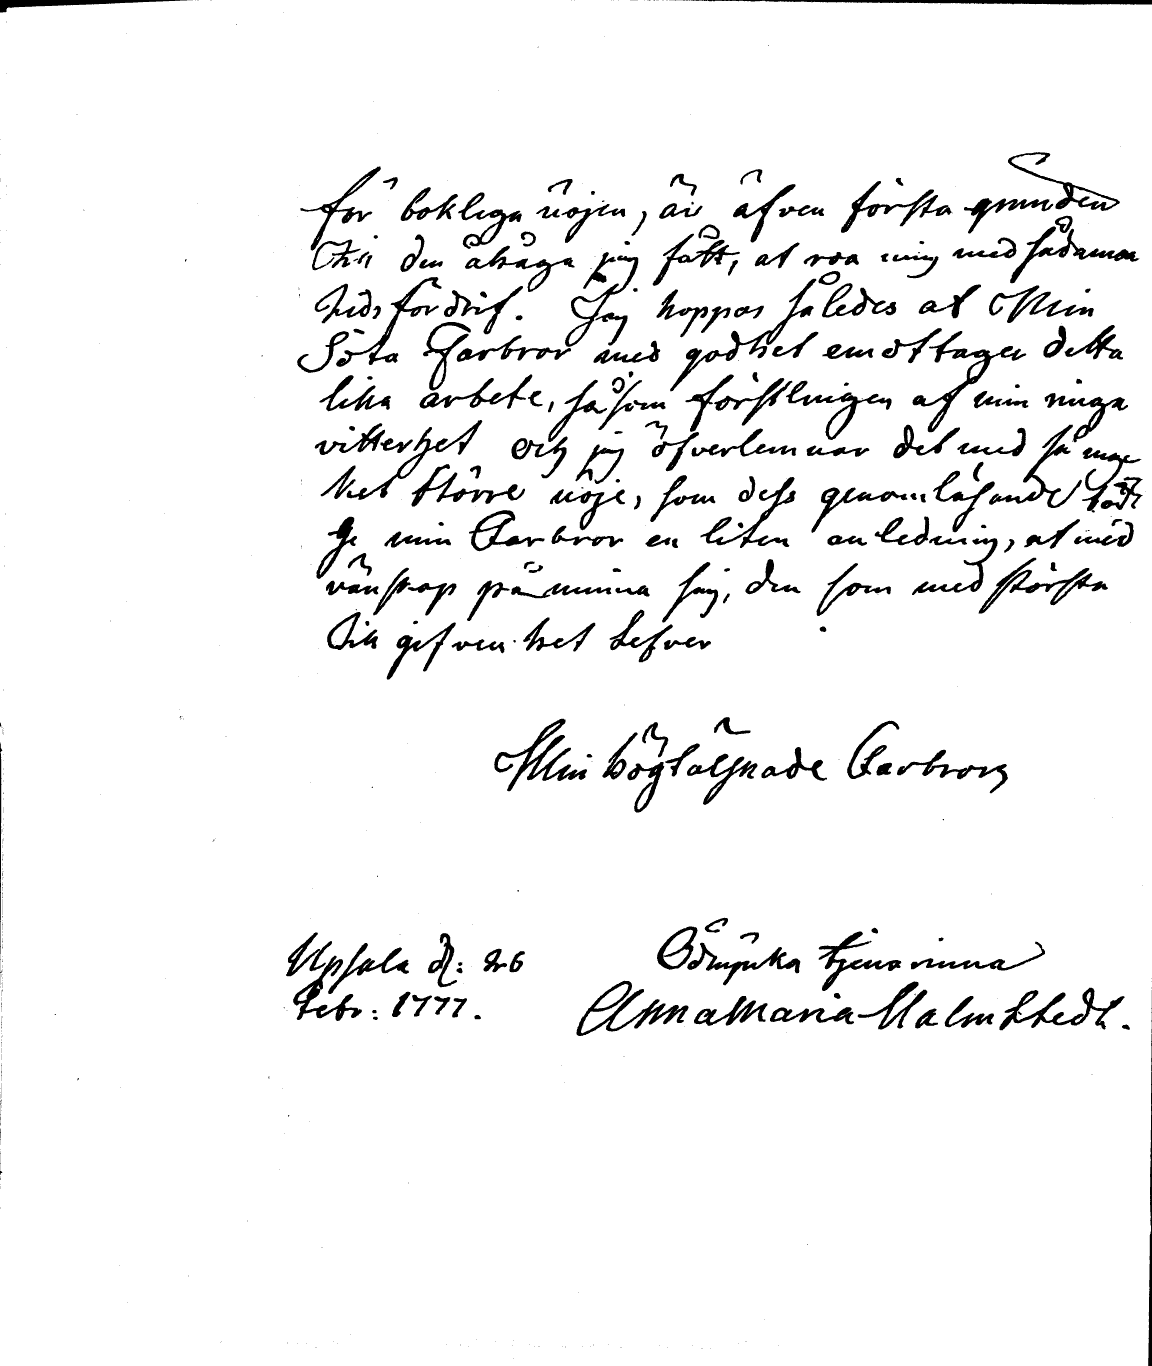 för bokliga nöjen, är äfven första grunden
Till den åhåga jag fått, at roa mig med sådannan
tidsfördrif. Jag hoppas således at Min
Söta Farbror med godhet emottager detta
lilla arbete, såsom förstlingen af min ringa
vitterhet och jag öfverlemnar det med så myc
ket större nöje, som dess genomläsande torde
ge min Farbror en liten anledning, at med
vänskap påminna sig, den som med största
Tillgifvenhet Lefver
Min högtälskade Farbrors
Upsala d: 26
Febr: 1777.
Ödmjuka tjenarinna
Anna Maria Malmstedt.